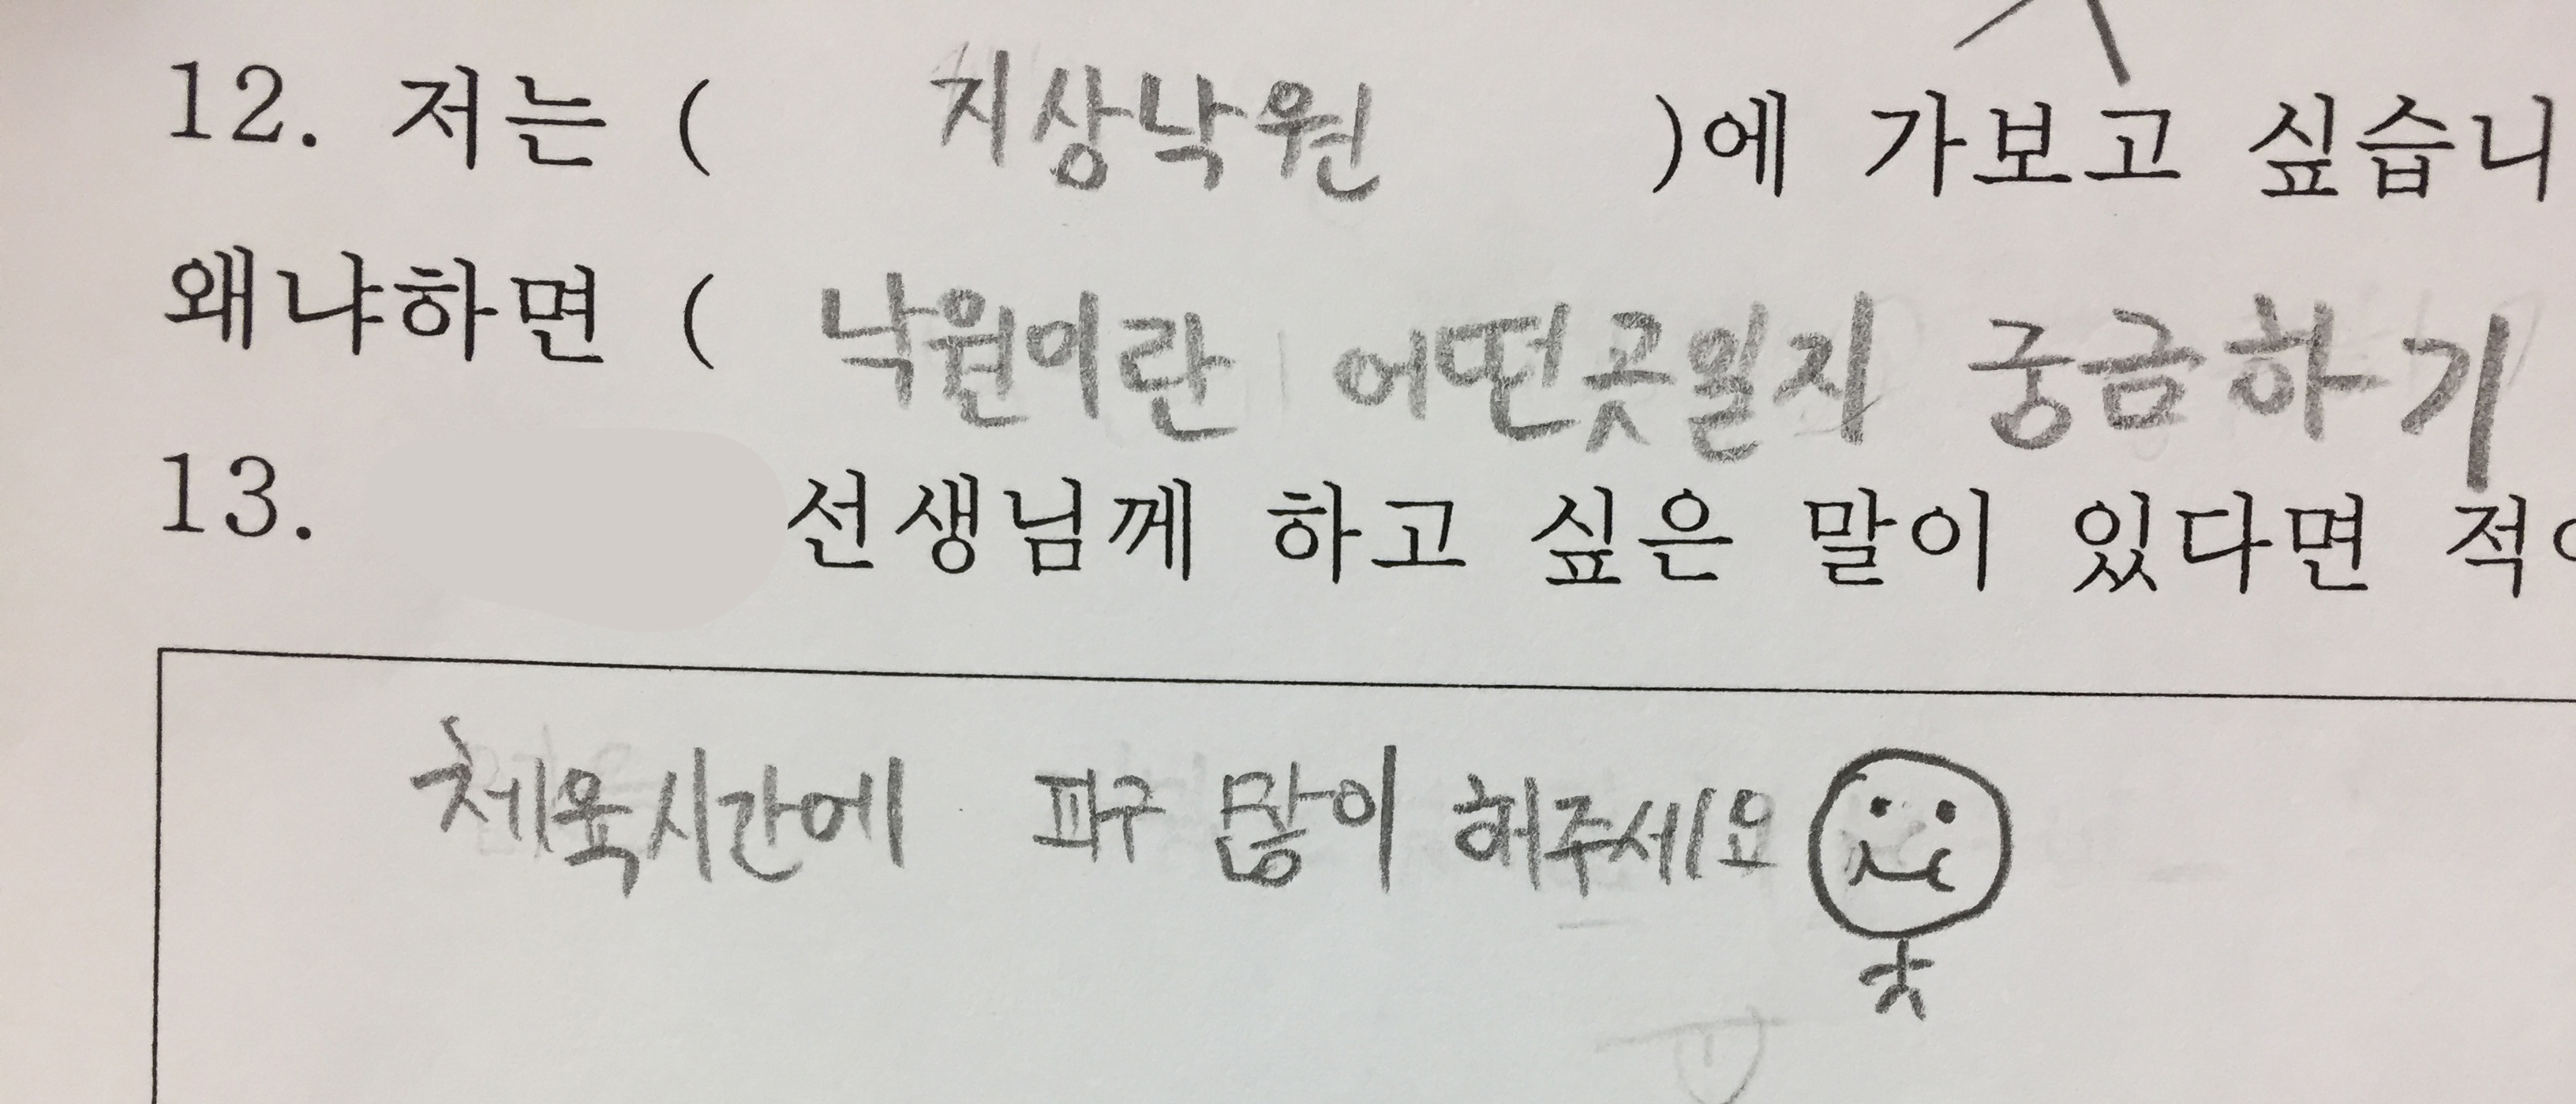 12. 저는 ( 지상낙원 )에 가보고 싶습니
왜냐하면 ( 낙원이란 어떤곳일지 궁금하기
13. 선생님께 하고 싶은 말이 있다면 적
체육시간에 피구 많이 해주세요